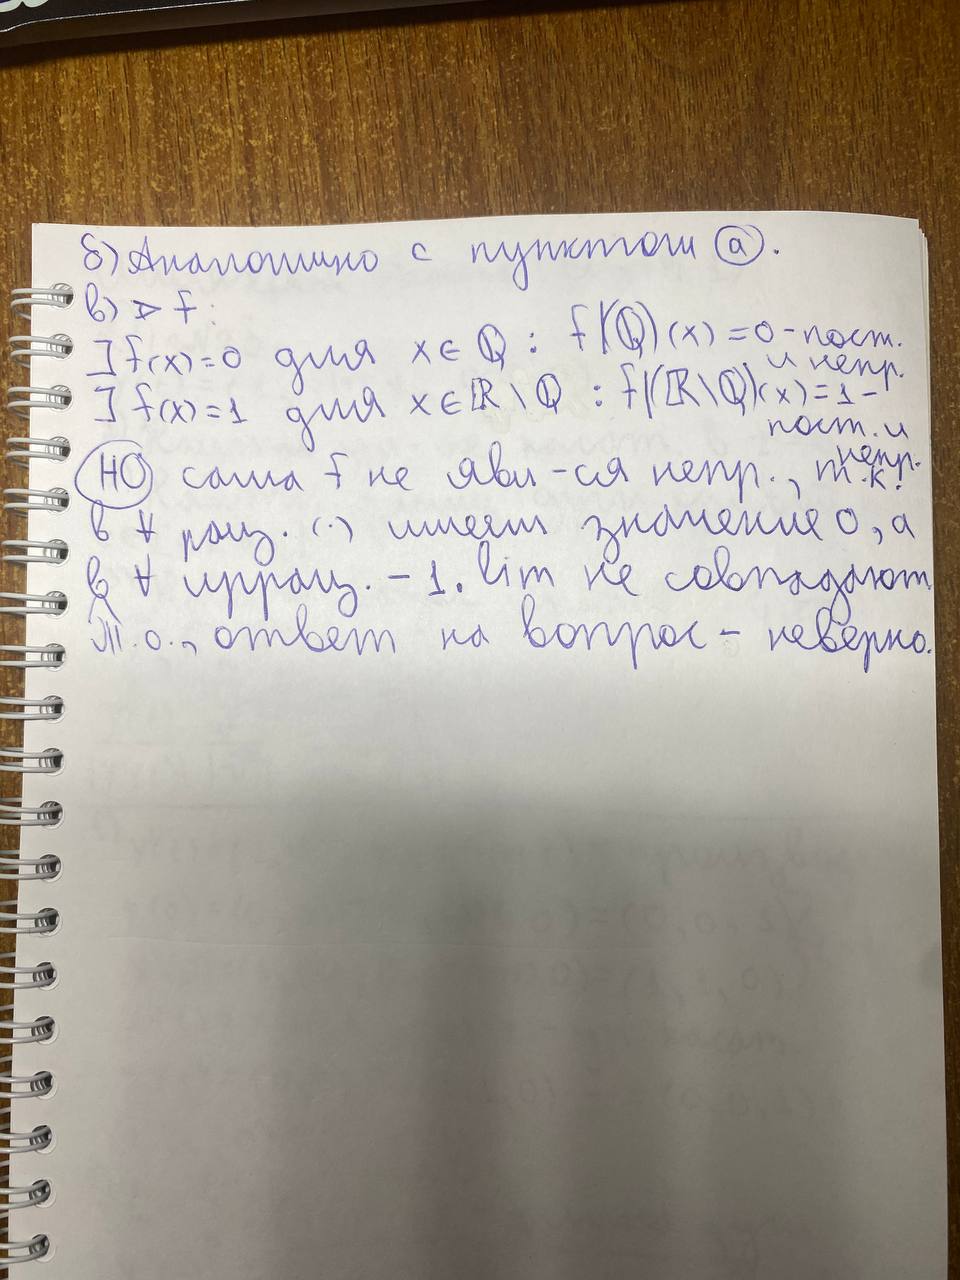 б) Аналогично с пунктом (а).
в) ⊳ f:
] f(x)=0 для x∈ℚ : f|(ℚ)(x)=0 - пост.
и непр.
] f(x)=1 для x∈ℝ\ℚ : f|(ℝ\ℚ)(x)=1 -
пост. и
непр.
НО сама f не явл-ся непр., т.к.
в ∀ рац. (·) имеет значение 0, а
в ∀ иррац. - 1. lim не совпадают.
Т.о., ответ на вопрос - неверно.